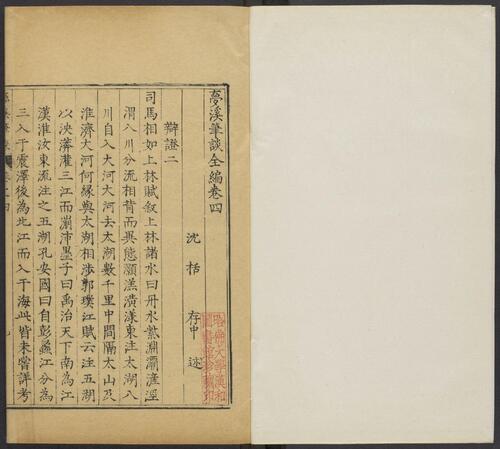 夢溪筆談全編卷四
沈括 存中 述
辯證二
司馬相如上林賦叙上林諸水曰丹水紫淵灞滻涇
渭八川分流相背而異態灝溔潢漾東注太湖八
川自入大河大河去太湖數千里中間隔太山及
淮濟大河何縁與太湖相渉郭璞江賦云注五湖
以泱漭灌三江而漰沛墨子曰禹治天下南為江
漢淮汝東流注之五湖孔安國曰自彭蠡江分為
三入于震澤後為北江而入于海此皆未嘗詳考
哈佛大學漢和
圖書館珍藏印